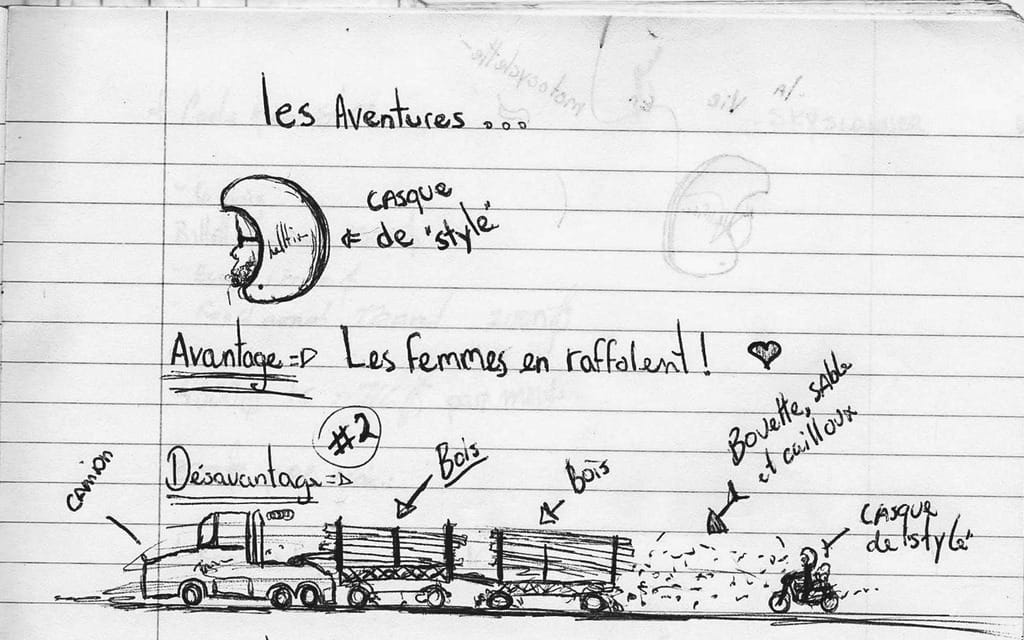 les Aventures...
CASQUE
de "style"
Avantage => Les femmes en raffolent! ♥
#2
Désavantage =>
camion
Bois
Bois
Bouette, SAble
et cailloux
CASQUE
de "style"